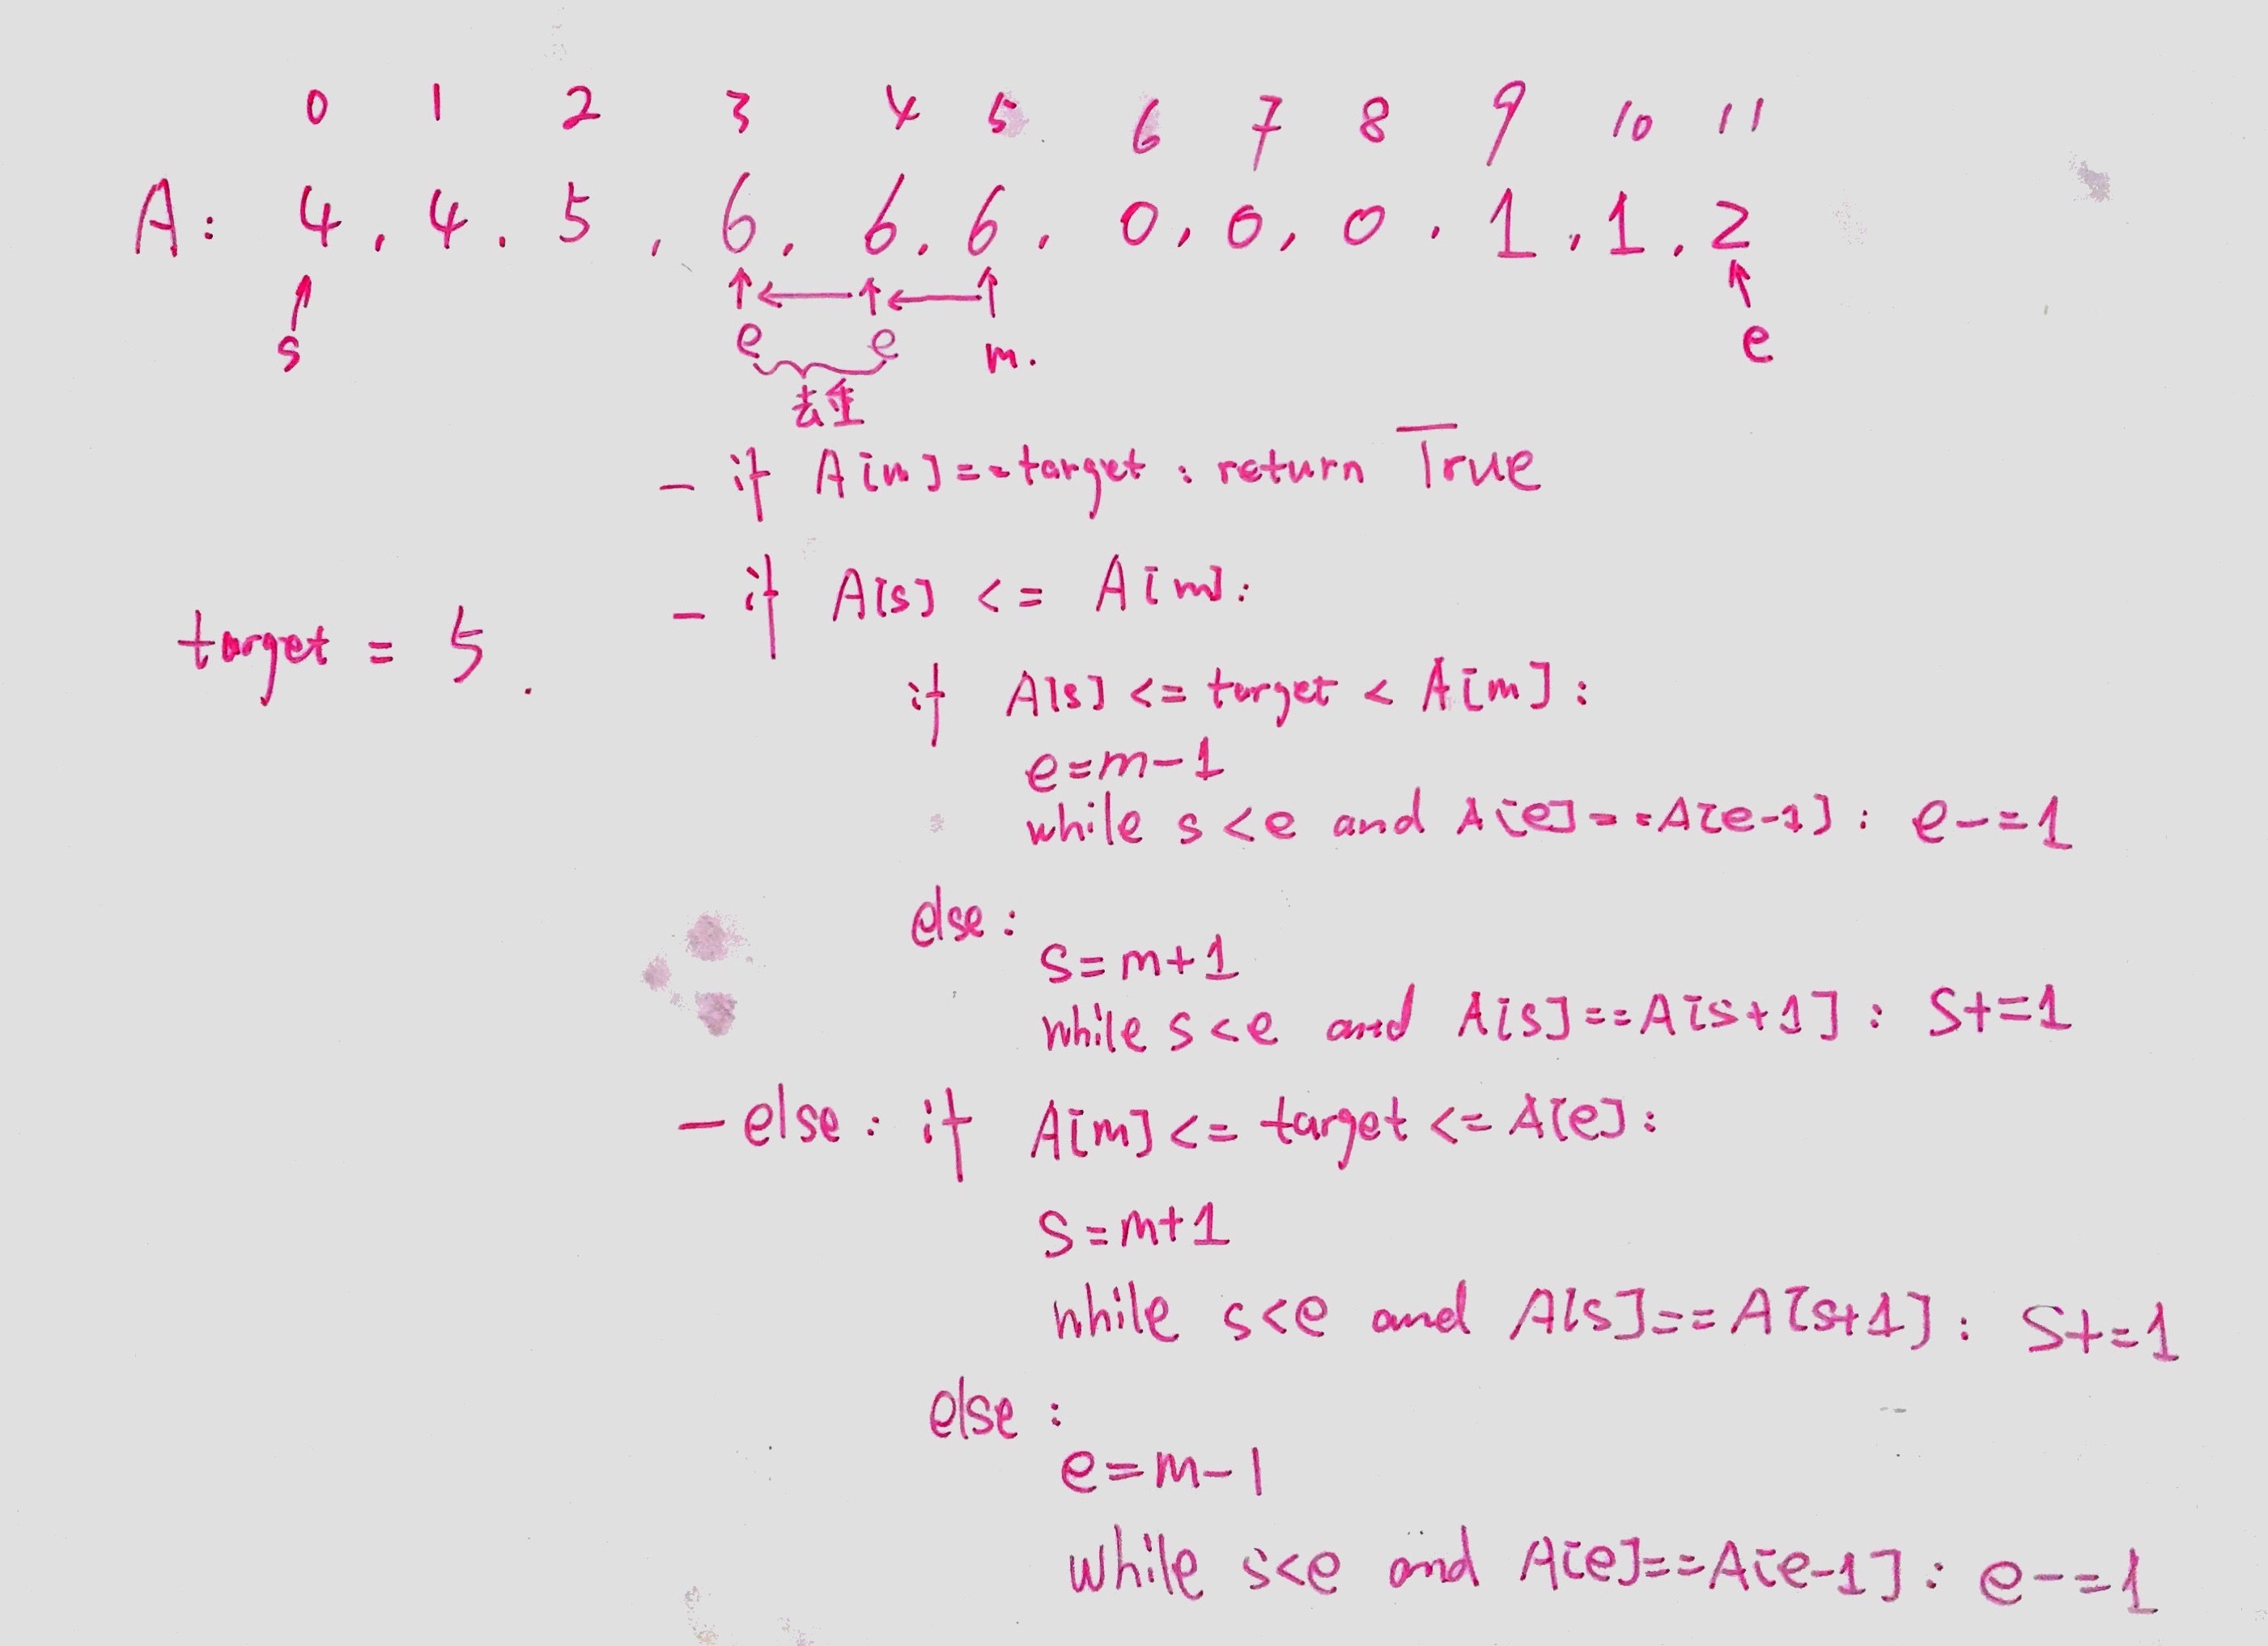 0 1 2 3 4 5 6 7 8 9 10 11
A: 4, 4, 5, 6, 6, 6, 0, 0, 0, 1, 1, 2
s e e m. e
去重
- if A[m]==target: return True
- if A[s] <= A[m]:
target = 5.
if A[s] <= target < A[m]:
e=m-1
while s<e and A[e]==A[e-1]: e-=1
else:
s=m+1
while s<e and A[s]==A[s+1]: s+=1
- else: if A[m] <= target <= A[e]:
s=m+1
while s<e and A[s]==A[s+1]: s+=1
else:
e=m-1
while s<e and A[e]==A[e-1]: e-=1